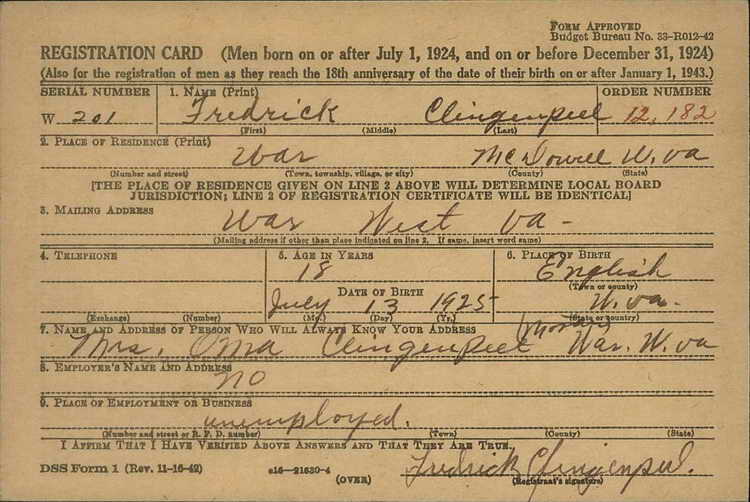 FORM APPROVED
BUDGET BUREAU NO. 33-R012-42
REGISTRATION CARD (Men born on or after July 1, 1924, and on or before December 31, 1924)
(Also for the registration of men as they reach the 18th anniversary of the date of their birth on or after January 1, 1943.)
SERIAL NUMBER 1. NAME (Print) ORDER NUMBER
W 201 Fredrick Clingenpeel 12,182
(First) (Middle) (Last)
2. PLACE OF RESIDENCE (Print)
War McDowell W. va
(Number and street) (Town, township, village, or city) (County) (State)
[THE PLACE OF RESIDENCE GIVEN ON LINE 2 ABOVE WILL DETERMINE LOCAL BOARD
JURISDICTION; LINE 2 OF REGISTRATION CERTIFICATE WILL BE IDENTICAL]
3. MAILING ADDRESS
War West va -
(Mailing address if other than place indicated on line 2. If same, insert word same)
4. TELEPHONE 5. AGE IN YEARS 6. PLACE OF BIRTH
18 English
(Town or county)
DATE OF BIRTH
July 13 1925 W. va-
(Exchange) (Number) (Mo.) (Day) (Yr.) (State or country)
7. NAME AND ADDRESS OF PERSON WHO WILL ALWAYS KNOW YOUR ADDRESS
Mrs. Oma Clingenpeel War. W. va
8. EMPLOYER'S NAME AND ADDRESS
no
9. PLACE OF EMPLOYMENT OR BUSINESS
unemployed.
(Number and street or R. F. D. number) (Town) (County) (State)
I AFFIRM THAT I HAVE VERIFIED ABOVE ANSWERS AND THAT THEY ARE TRUE.
DSS Form 1 (Rev. 11-16-42) 16-21630-4 Fredrick Clingenpeel.
(OVER) (Registrant's signature)